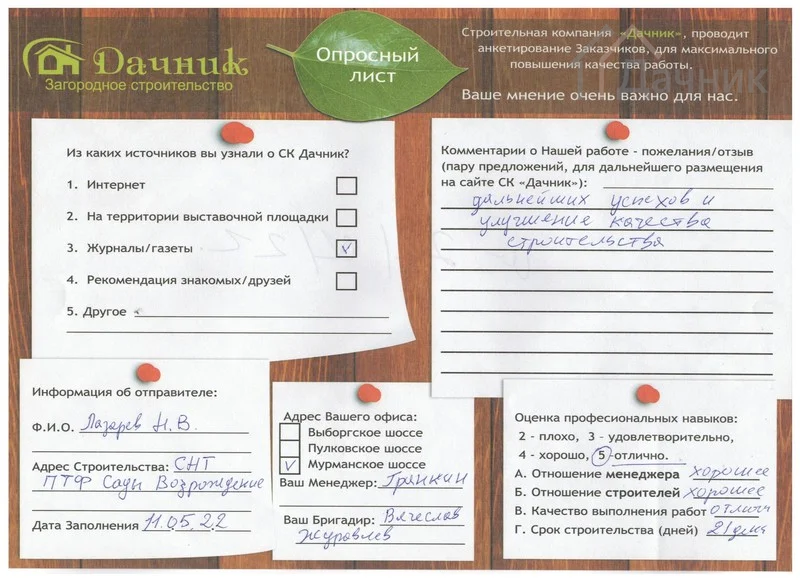 Дачник
Загородное строительство
Опросный
лист
Строительная компания «Дачник», проводит
анкетирование Заказчиков, для максимального
повышения качества работы.
Ваше мнение очень важно для нас.
Дачник
Из каких источников вы узнали о СК Дачник?
1. Интернет
2. На территории выставочной площадки
3. Журналы/газеты
4. Рекомендация знакомых/друзей
5. Другое
Комментарии о Нашей работе - пожелания/отзыв
(пару предложений, для дальнейшего размещения
на сайте СК «Дачник»):
дальнейших успехов и
улучшение качества
строительства
Информация об отправителе:
Ф.И.О. Лазарев Н.В.
Адрес Строительства: СНТ
ПТФ Сады Возрождение
Дата Заполнения 11.05.22
Адрес Вашего офиса:
Выборгское шоссе
Пулковское шоссе
Мурманское шоссе
Ваш Менеджер: Грянкин
Ваш Бригадир: Вячеслав
Журавлев
Оценка профессиональных навыков:
2 - плохо, 3 - удовлетворительно,
4 - хорошо, 5 - отлично.
А. Отношение менеджера хорошее
Б. Отношение строителей хорошее
В. Качество выполнения работ отличн
Г. Срок строительства (дней) 21 дня